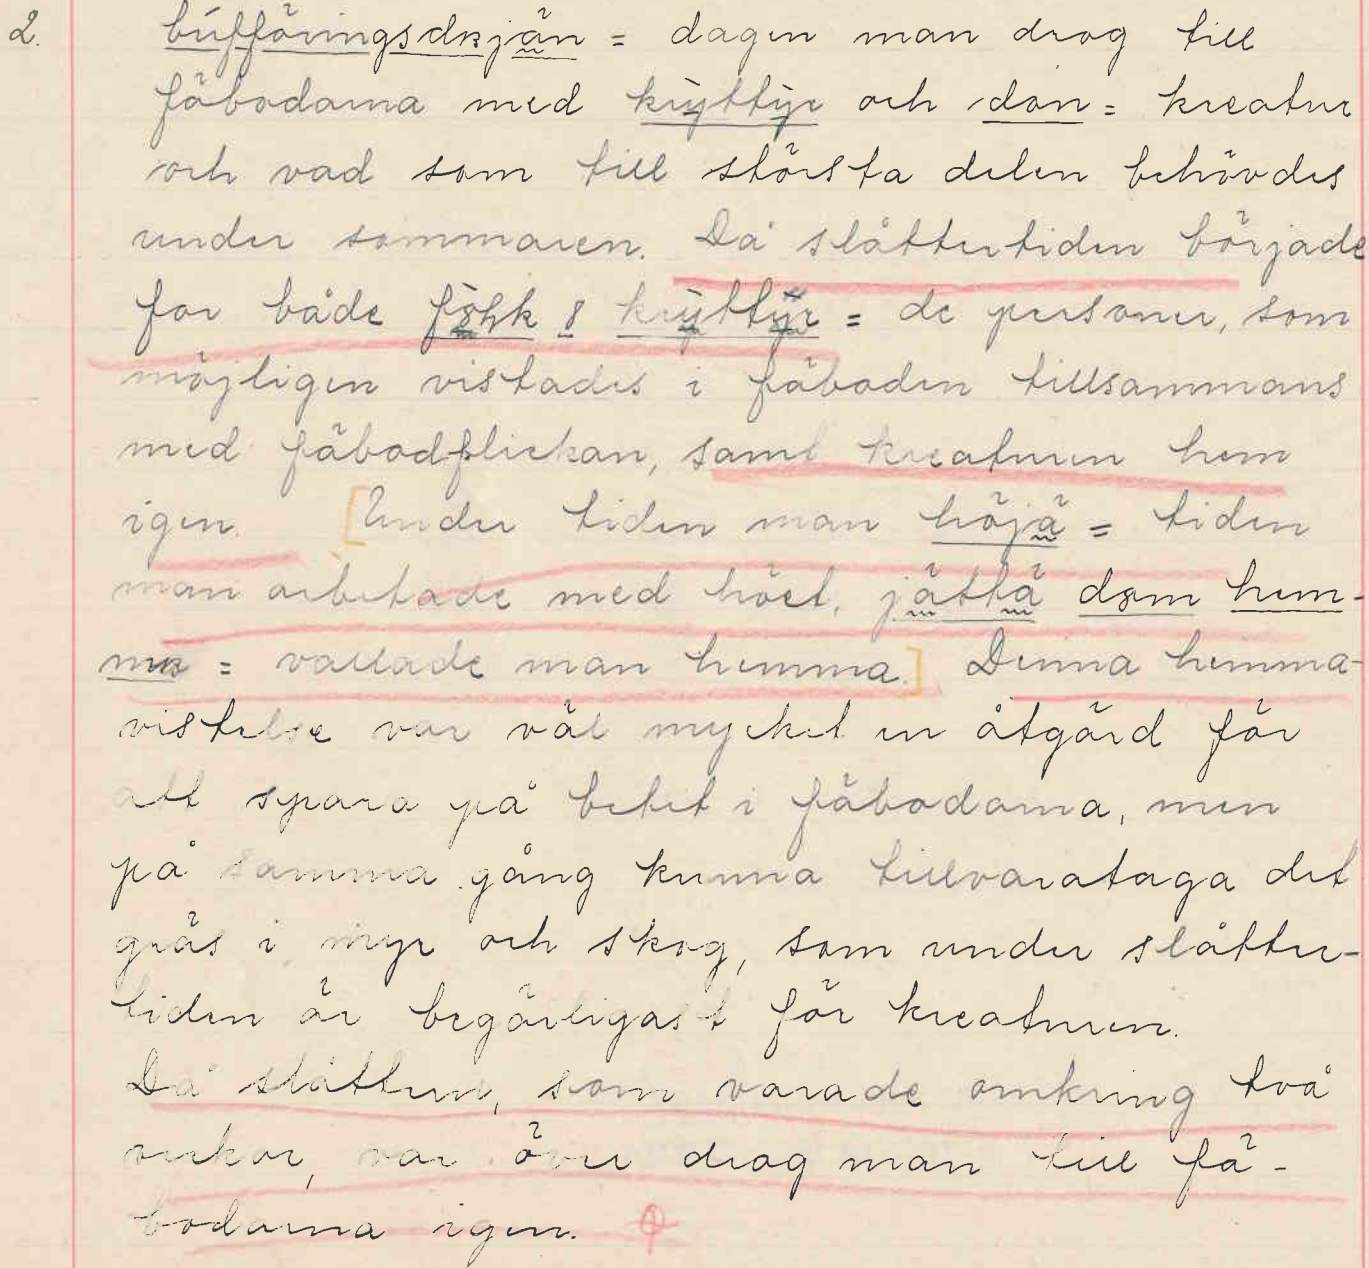 2. búfföringsdɐjän = dagen man drog till
fäbodarna med krÿttÿr och don = kreatur
och vad som till största delen behövdes
under sommaren. Då slåttertiden började
for både fɞhk ɞ krÿttÿr = de personer, som
möjligen vistades i fäboden tillsammans
med fäbodflickan, samt kreaturen hem
igen. [Under tiden man höjä = tiden
man arbetade med höet, jättä dɞm hem-
mɐ = vallade man hemma.] Denna hemma-
vistelse var väl mycket en åtgärd för
att spara på betet i fäbodarna, men
på samma gång kunna tillvarataga det
gräs i myr och skog, som under slåtter-
tiden är begärligast för kreaturen.
Då slåttern, som varade omkring två
veckor, var över drog man till fä-
bodarna igen.